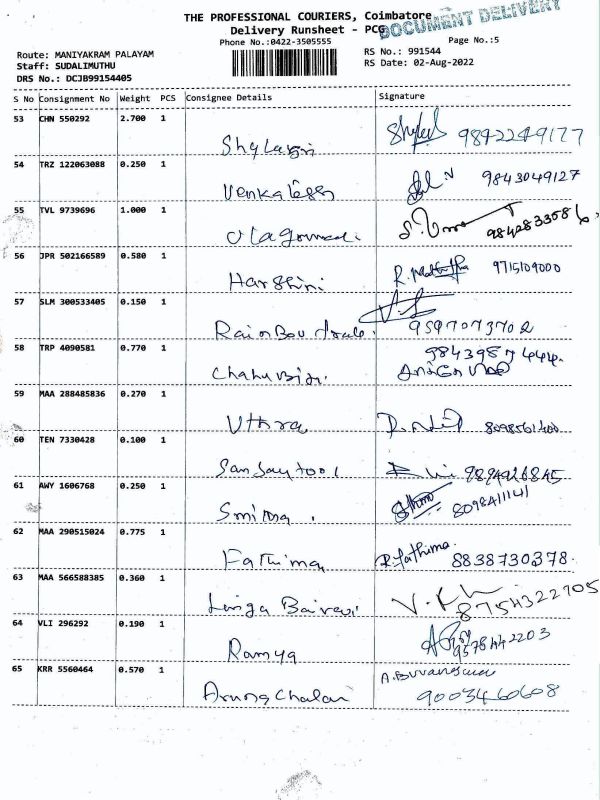 THE PROFESSIONAL COURIERS, Coimbatore
DOCUMENT DELIVERY
Delivery Runsheet - PCG
Phone No.:0422-3505555
Page No.:5
Route: MANIYAKRAM PALAYAM
RS No.: 991544
Staff: SUDALIMUTHU
RS Date: 02-Aug-2022
DRS No.: DCJB99154405
S No Consignment No Weight PCS Consignee Details Signature
53 CHN 550292 2.700 1
9842249177
54 TRZ 122063088 0.250 1
Venkatesh 9843049127
55 TVL 9739696 1.000 1
56 JPR 502166589 0.580 1
Harshini 9715109000
57 SLM 300533405 0.150 1
RainBow 9597073702
58 TRP 4090581 0.770 1
59 MAA 288485836 0.270 1
Uthra 8098561400
60 TEN 7330428 0.100 1
9894926845
61 AWY 1606768 0.250 1
8098411141
62 MAA 290515024 0.775 1
Fathima R.fathima. 8838730378.
63 MAA 566588385 0.360 1
Linga Bairavi V.K 8754322705
64 VLI 296292 0.190 1
Ramya 9578442203
65 KRR 5560464 0.570 1
9003460608